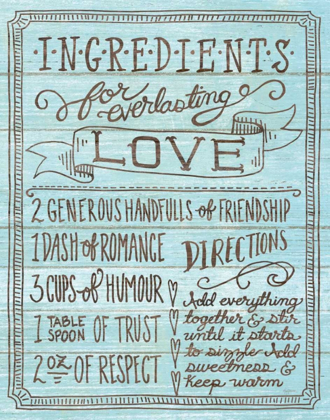 ·I·N·G·R·E·D·I·E·N·T·S·
for everlasting
LOVE
2 GENEROUS HANDFULLS of FRIENDSHIP
1 DASH of ROMANCE
3 CUPS of HUMOUR
1 TABLE SPOON OF TRUST
2 OZ OF RESPECT
DIRECTIONS
Add everything
together & stir
until it starts
to sizzle Add
sweetness &
Keep warm